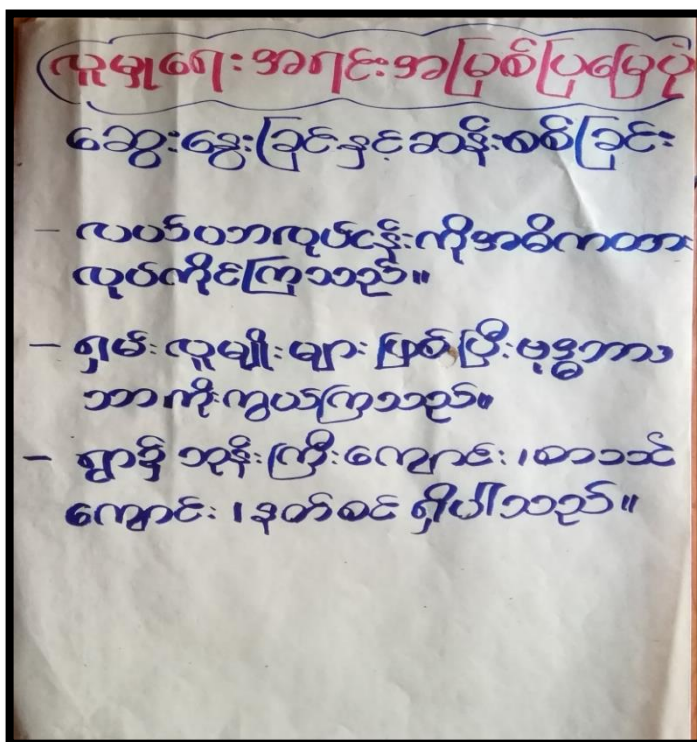 လူမှုရေးအရင်းအမြစ်ပြမြေပုံ
ဆွေးနွေးခြင်နှင့်ဆန်းစစ်ခြင်း
- လယ်ယာလုပ်ငန်းကိုအဓိကထား
လုပ်ကိုင်ကြသည်။
- ရှမ်းလူမျိုးများဖြစ်ပြီးဗုဒ္ဓဘာသာ
ဘာကိုးကွယ်ကြသည်။
- ရွာ၌ ဘုန်းကြီးကျောင်း၊စာသင်
ကျောင်း၊နတ်စင်ရှိပါသည်။